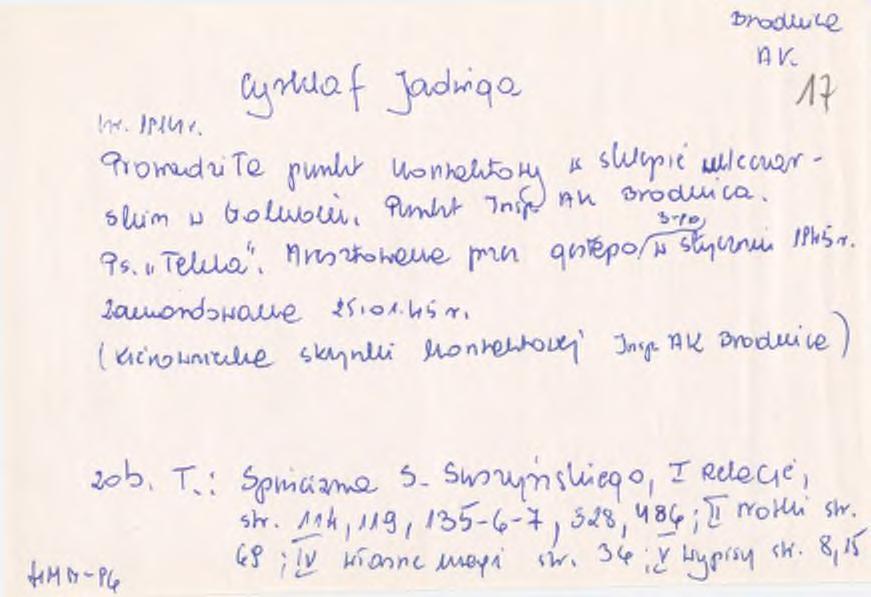 Brodnica
AK.
17
Cyrklaf Jadwiga
Prowadziła punkt kontaktowy w sklepie mleczar-
skim w Golubiu. Punkt Insp. AK Brodnica.
Ps. "Tekla". Aresztowana przez gestapo w styczniu 1945 r.
zamordowana 25.01.45 r.
(kierowniczka skrzynki kontaktowej Insp. AK Brodnica)
zob. T.: Spuścizna S. Suszyńskiego, I Relacje,
str. 114, 119, 135-6-7, 328, 486; II notki str.
69; IV własne str. 36; V wypisy str. 8, 15